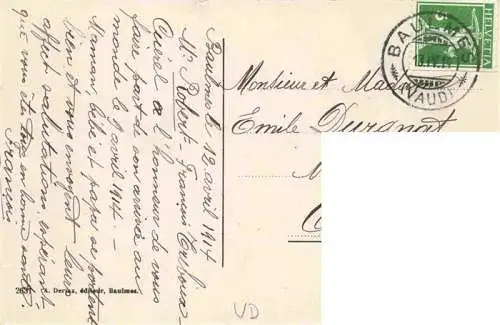 Baulmes le 12 avril 1914
Mr Robert-François
Quérel a l'honneur de vous
faire part de son arrivée au
monde le 9 avril 1914 -
Maman, bébé et papa se portent
bien et vous envoyent leurs
affect. salutations, espérant
que vous êtes tous en bonne santé.
François
HELVETIA
BAULMES
(VAUD)
Monsieur et Madame
Emile Durgnat
2637 A. Deriaz, éditeur, Baulmes.
VD